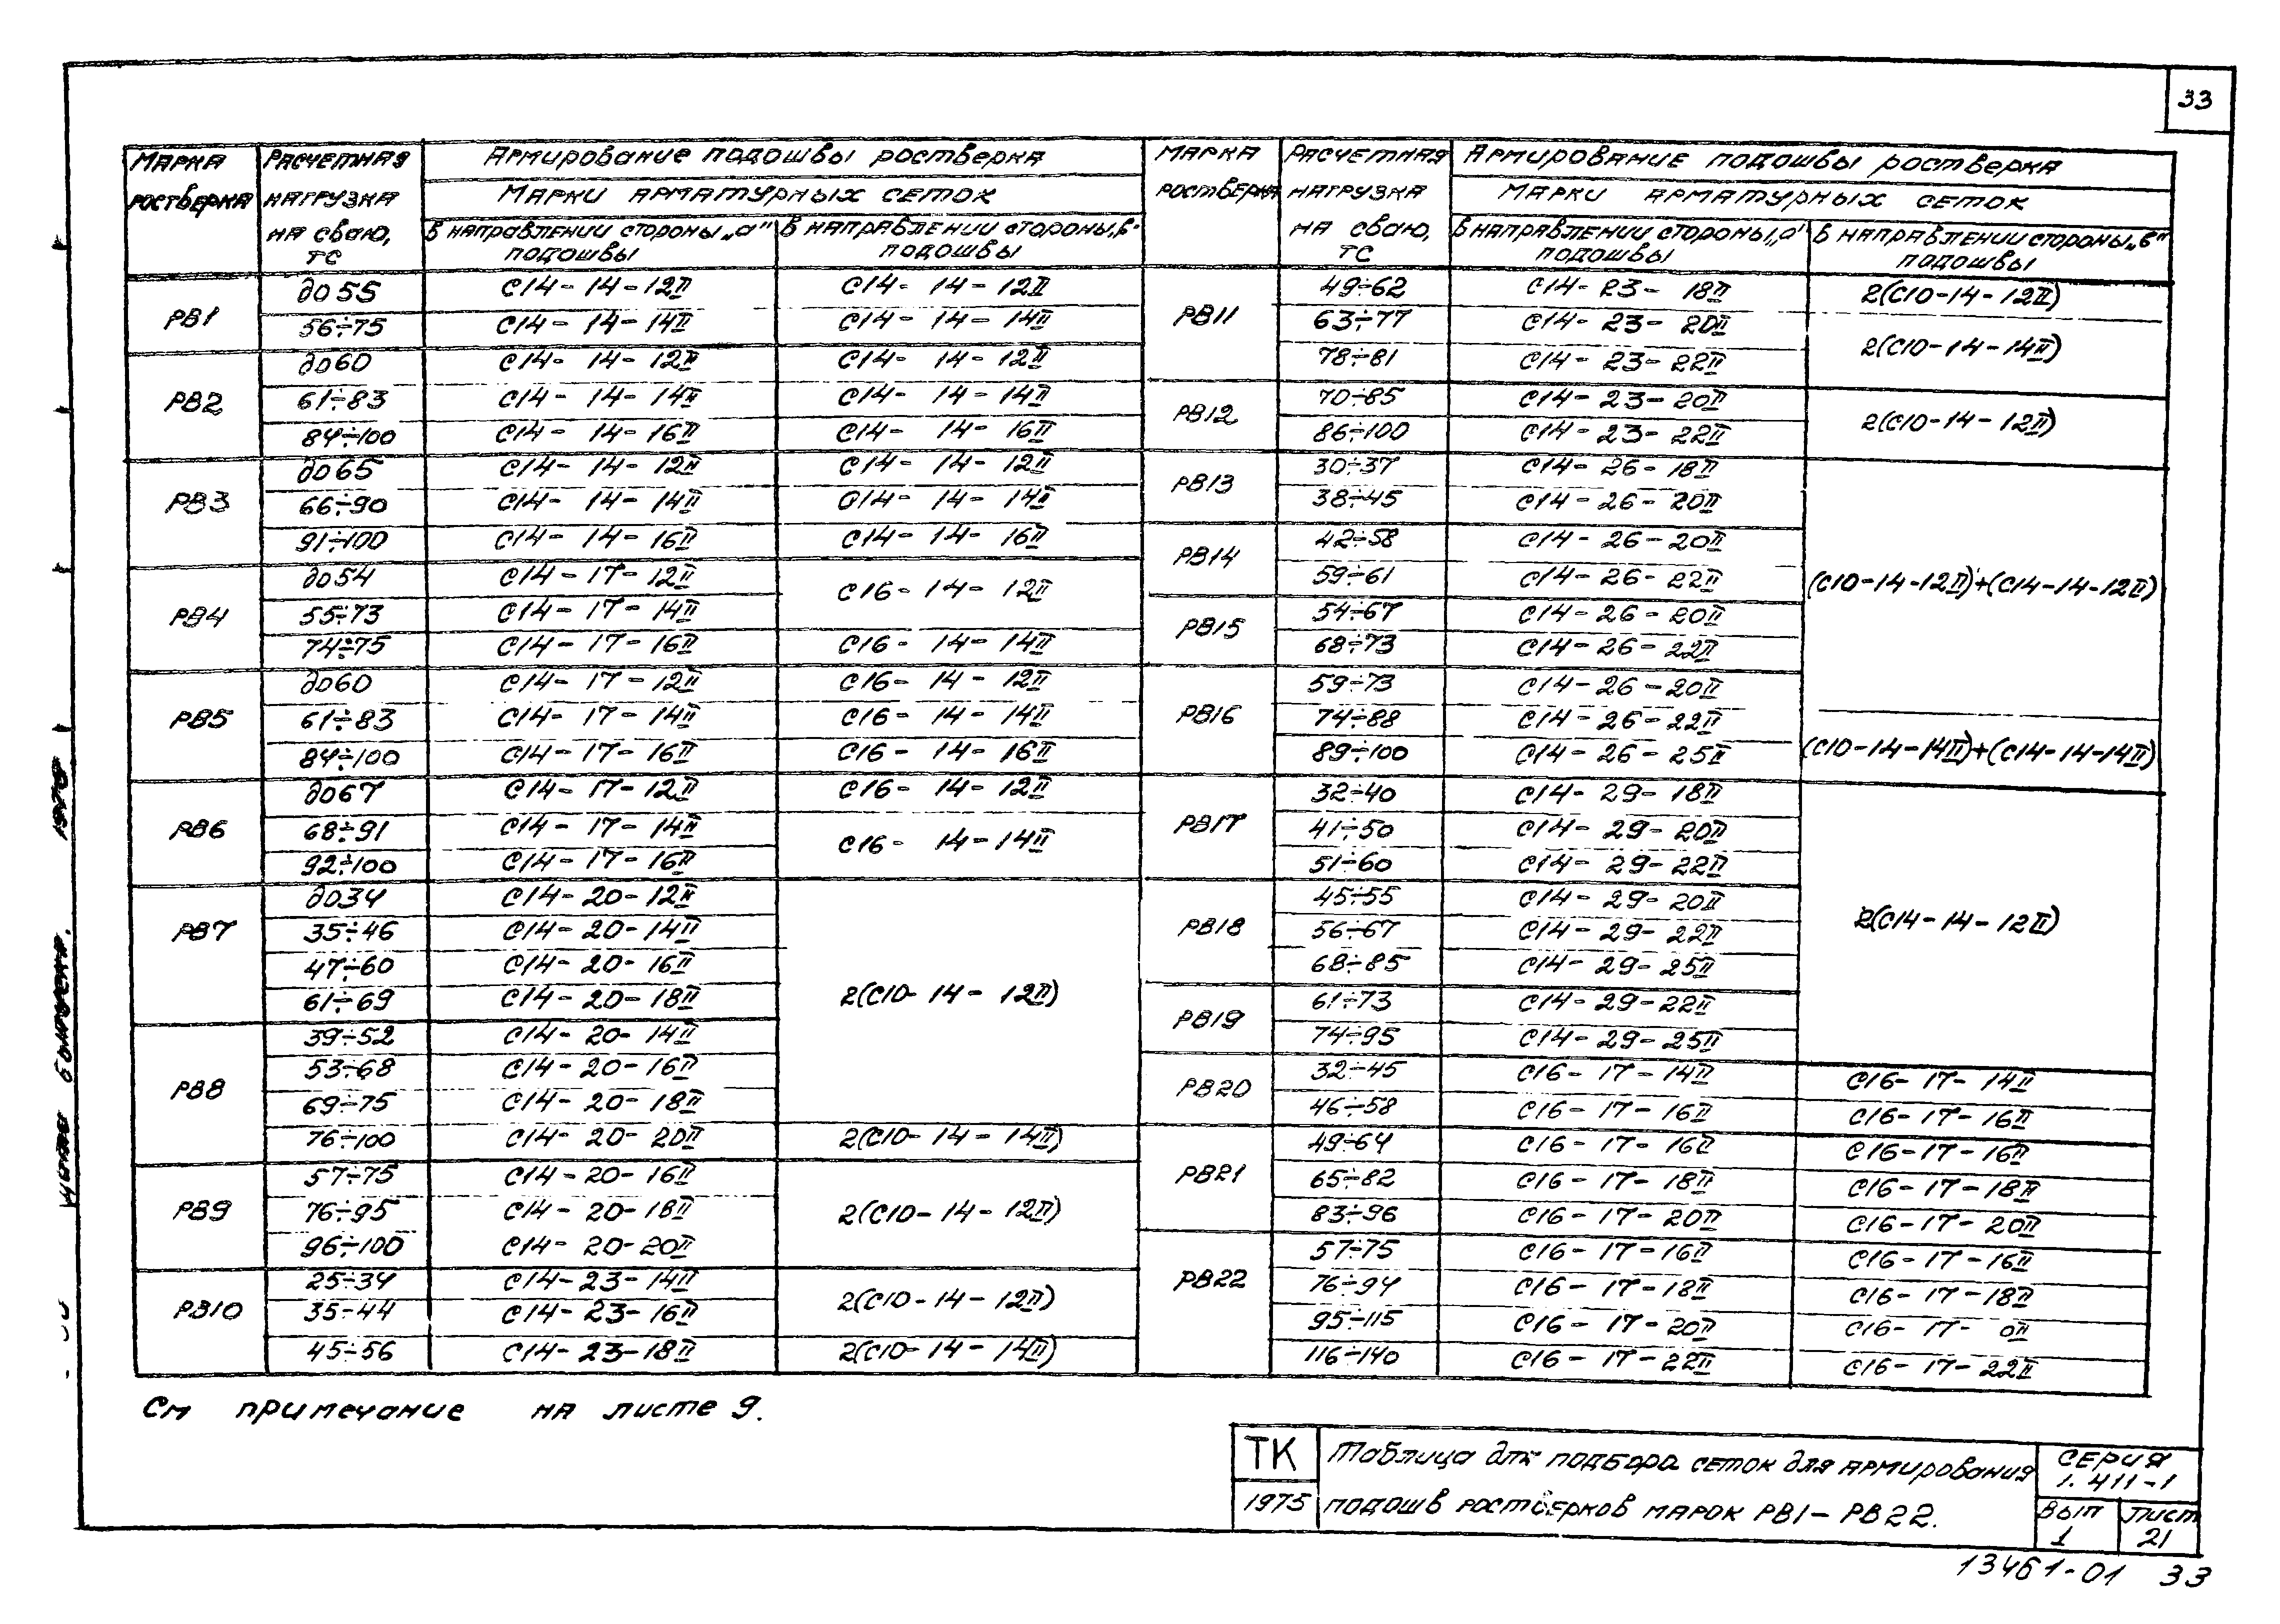 33
Марка ростверка | Расчетная нагрузка на сваю, тс | Армирование подошвы ростверка | Марка ростверка | Расчетная нагрузка на сваю, тс | Армирование подошвы ростверка
Марки арматурных сеток | Марки арматурных сеток
в направлении стороны „а" подошвы | в направлении стороны „в" подошвы | в направлении стороны „а" подошвы | в направлении стороны „в" подошвы
РВ1
до 55 | С14-14-12II | С14-14-12II
56÷75 | С14-14-14II | С14-14-14II
РВ2
до 60 | С14-14-12II | С14-14-12II
61÷83 | С14-14-14II | С14-14-14II
84÷100 | С14-14-16II | С14-14-16II
РВ3
до 65 | С14-14-12II | С14-14-12II
66÷90 | С14-14-14II | С14-14-14II
91÷100 | С14-14-16II | С14-14-16II
РВ4
до 54 | С14-17-12II | С16-14-12II
55÷73 | С14-17-14II
74÷75 | С14-17-16II | С16-14-14II
РВ5
до 60 | С14-17-12II | С16-14-12II
61÷83 | С14-17-14II | С16-14-14II
84÷100 | С14-17-16II | С16-14-16II
РВ6
до 67 | С14-17-12II | С16-14-12II
68÷91 | С14-17-14II | С16-14-14II
92÷100 | С14-17-16II
РВ7
до 34 | С14-20-12II
35÷46 | С14-20-14II
47÷60 | С14-20-16II
61÷69 | С14-20-18II | 2(С10-14-12II)
РВ8
39÷52 | С14-20-14II
53÷68 | С14-20-16II
69÷75 | С14-20-18II
76÷100 | С14-20-20II | 2(С10-14-14II)
РВ9
57÷75 | С14-20-16II
76÷95 | С14-20-18II | 2(С10-14-12II)
96÷100 | С14-20-20II
РВ10
25÷34 | С14-23-14II | 2(С10-14-12II)
35÷44 | С14-23-16II
45÷56 | С14-23-18II | 2(С10-14-14II)
РВ11
49÷62 | С14-23-18II | 2(С10-14-12II)
63÷77 | С14-23-20II | 2(С10-14-14II)
78÷81 | С14-23-22II
РВ12
70÷85 | С14-23-20II | 2(С10-14-12II)
86÷100 | С14-23-22II
РВ13
30÷37 | С14-26-18II
38÷45 | С14-26-20II
РВ14
42÷58 | С14-26-20II
59÷61 | С14-26-22II | (С10-14-12II)+(С14-14-12II)
РВ15
54÷67 | С14-26-20II
68÷73 | С14-26-22II
РВ16
59÷73 | С14-26-20II
74÷88 | С14-26-22II | (С10-14-14II)+(С14-14-14II)
89÷100 | С14-26-25II
РВ17
32÷40 | С14-29-18II
41÷50 | С14-29-20II
51÷60 | С14-29-22II
РВ18
45÷55 | С14-29-20II | 2(С14-14-12II)
56÷67 | С14-29-22II
68÷85 | С14-29-25II
РВ19
61÷73 | С14-29-22II
74÷95 | С14-29-25II
РВ20
32÷45 | С16-17-14II | С16-17-14II
46÷58 | С16-17-16II | С16-17-16II
РВ21
49÷64 | С16-17-16II | С16-17-16II
65÷82 | С16-17-18II | С16-17-18II
83÷96 | С16-17-20II | С16-17-20II
РВ22
57÷75 | С16-17-16II | С16-17-16II
76÷94 | С16-17-18II | С16-17-18II
95÷115 | С16-17-20II | С16-17- 0II
116÷140 | С16-17-22II | С16-17-22II
См примечание на листе 9.
ТК
1975
Таблица для подбора сеток для армирования
подошв ростверков марок РВ1-РВ22.
Серия
1.411-1
Вып
1
Лист
21
13461-01 33